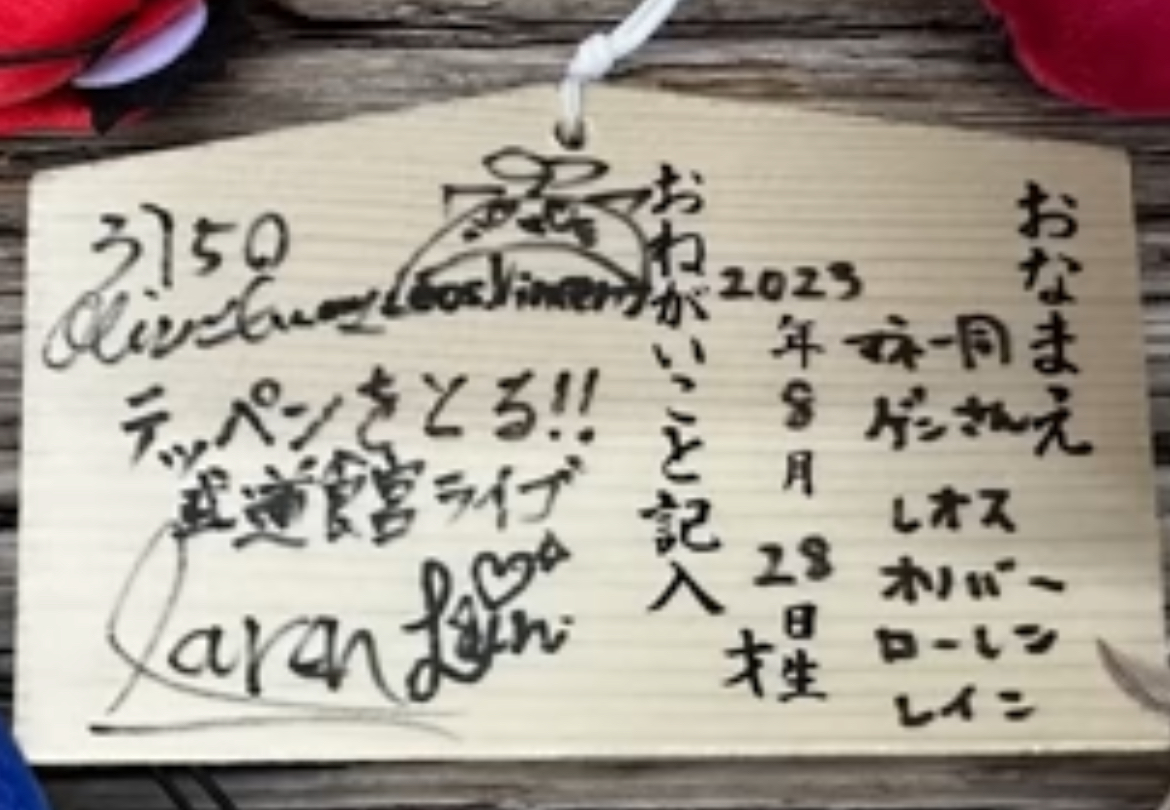 おなまえ
オネ一同
ゲンさん
レオス
オリバー
ローレン
レイン
2023
年8月
28日生
才
おねがいこと記入
3150
Leos Vincent
テッペンをとる!!
武道館ライブ
Laren
Lain